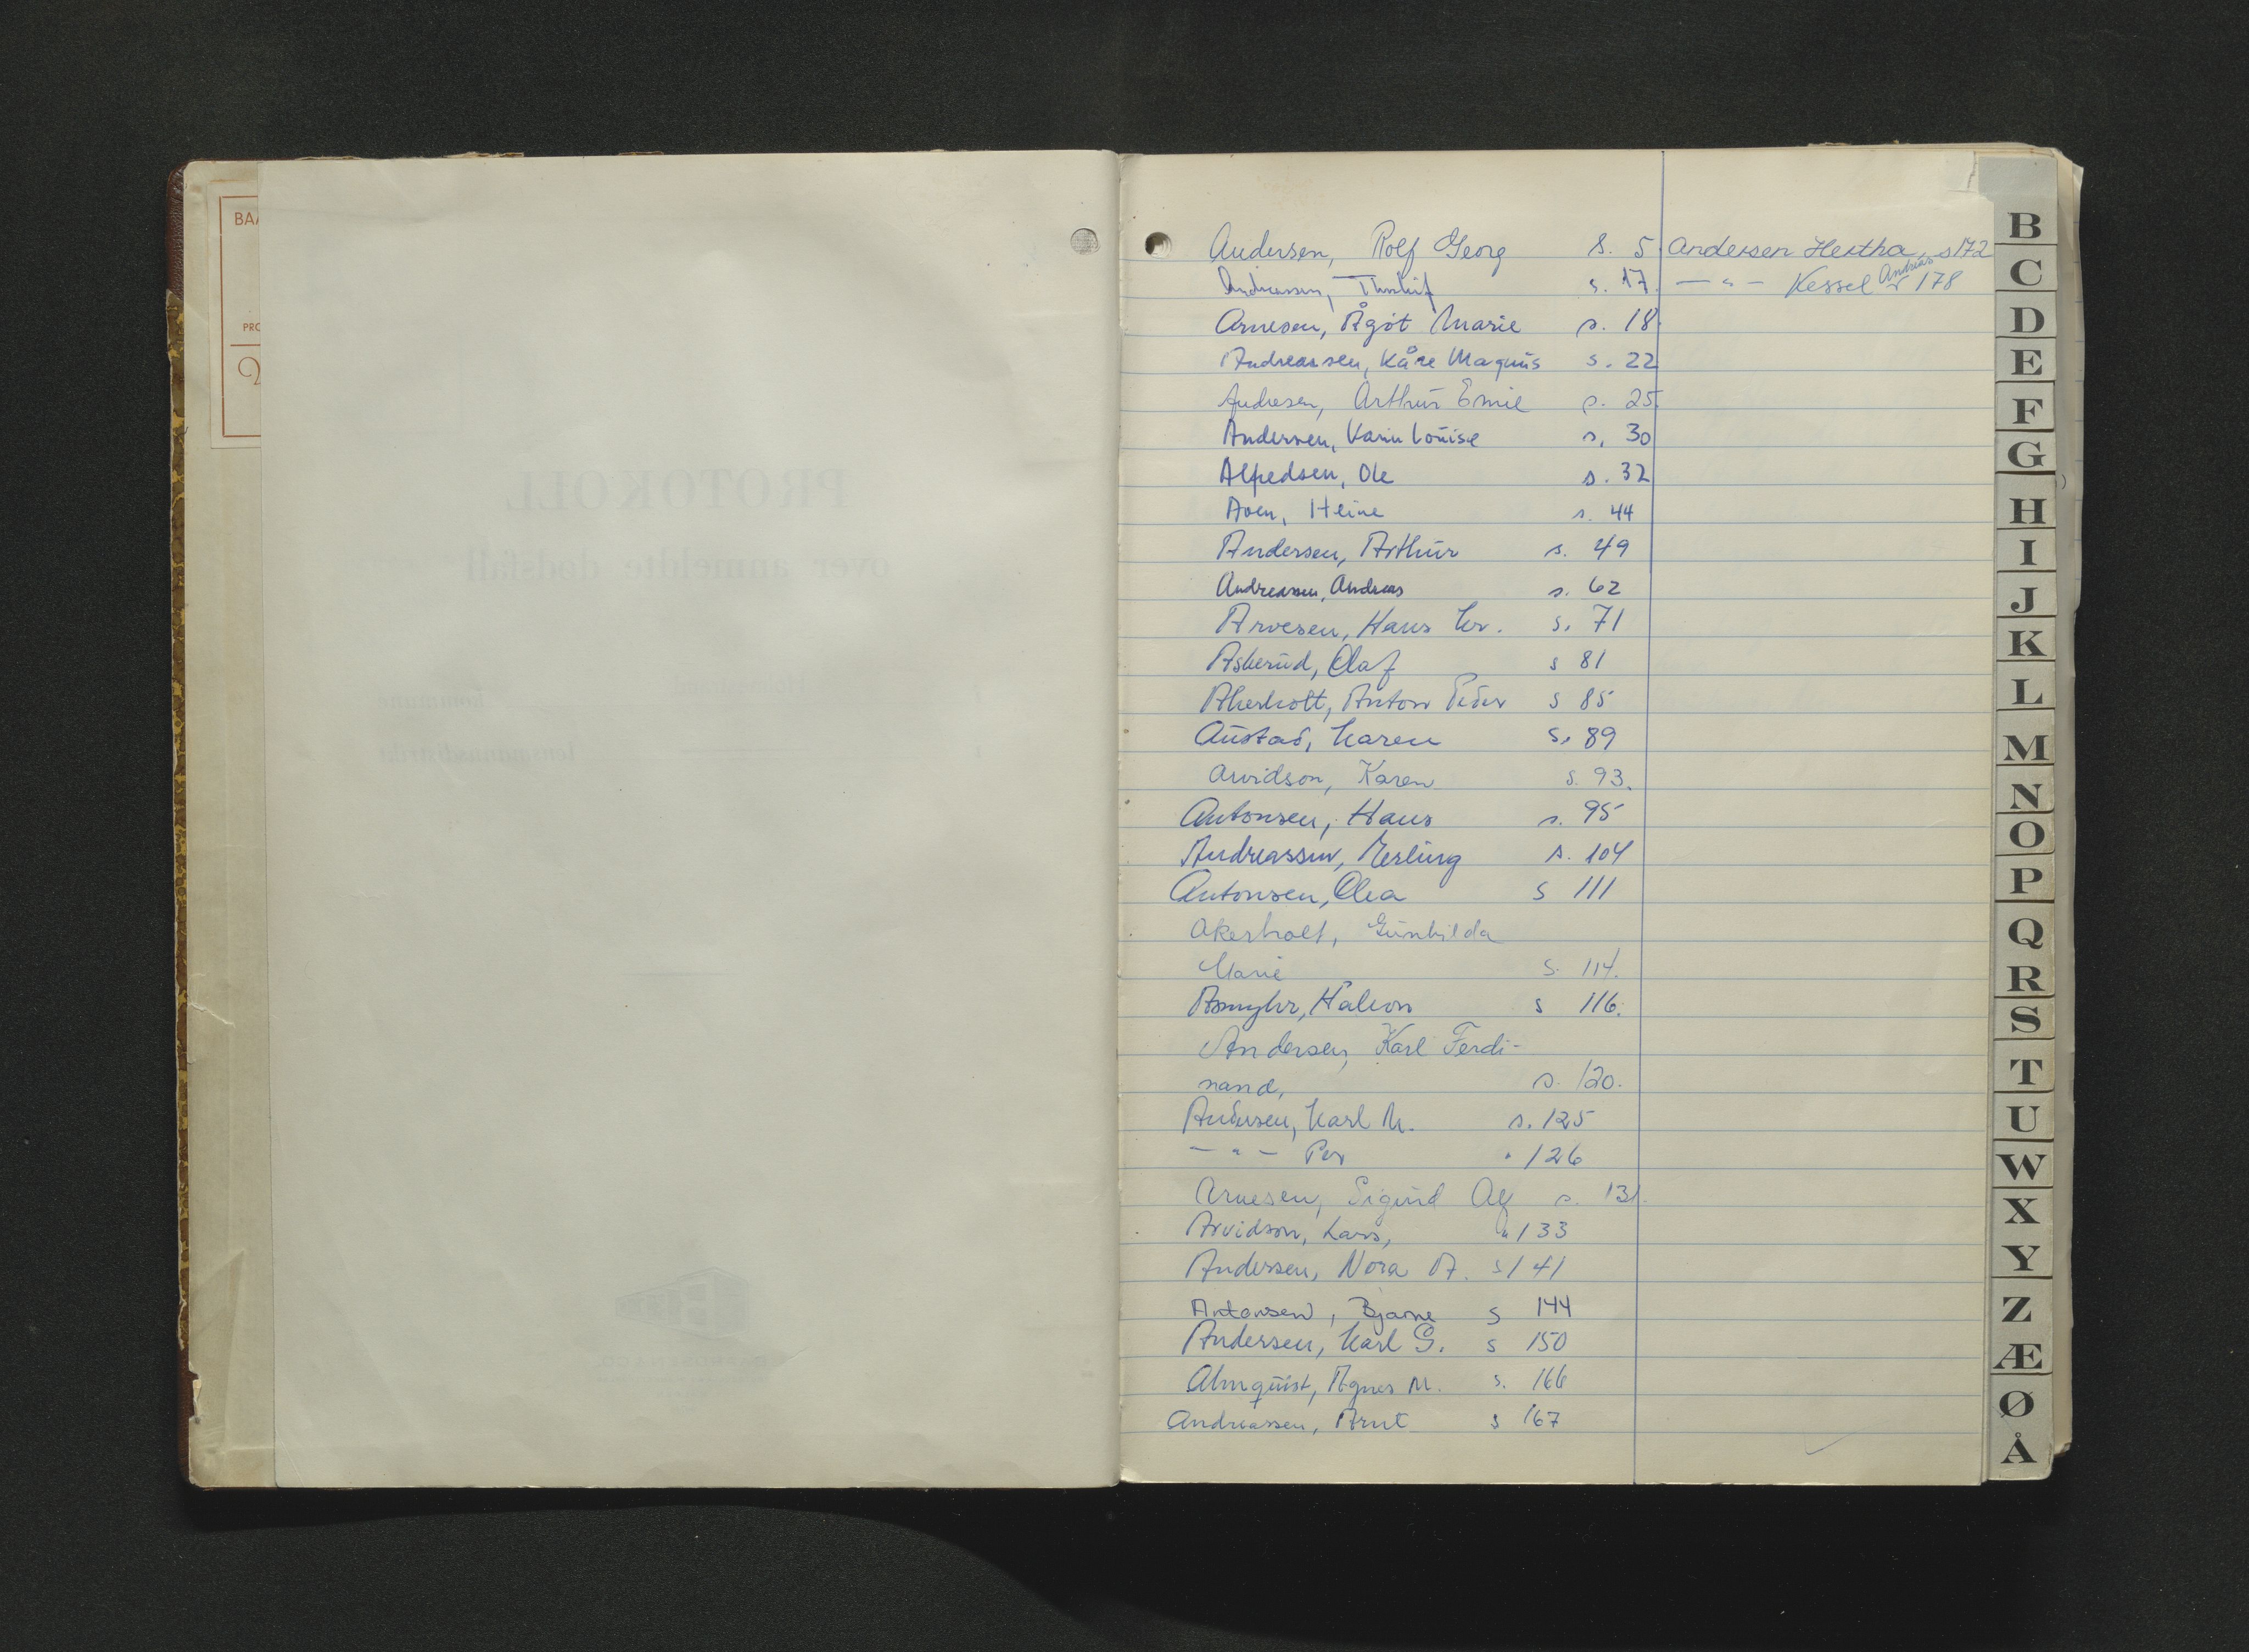 BA
PRO
PROTOKOLL
over anmeldte dødsfall
kommune
lensmannsdistrikt
Andersen, Rolf Georg s. 5
Andreassen, s. 17.
Arnesen, Ågot Marie s. 18.
Andreassen, Kåre Magnus s. 22
Andresen, Arthur Emil s. 25.
Andersen, Karin Louise s. 30
Alfredsen, Ole s. 32
Aven, Heine s. 44
Andersen, Arthur s. 49
Andreassen, Andreas s. 62
Arvesen, Hans Kr. s. 71
Askerud, Olaf s 81
Akerholt, Anton Peder s 85
Austad, Karen s. 89
Arvidson, Karen s. 93.
Antonsen, Hans s. 95
Andreassen, Erling s. 104
Antonsen, Olea s 111
Akerholt, Gunhilda
Marie s. 114.
Asmyhr, Håkon s 116.
Andersen, Karl Ferdi-
nand, s. 120.
Andersen, Karl M. s. 125
— " — Per " 126
Arnesen, Sigurd Alf s. 131.
Arvidson, Lars, " 133
Andersen, Nora A. s 141
Antonsen, Bjarne s 144
Andersen, Karl G. s 150
Almquist, Agnes M. s. 166
Andreassen, Arnt s 167
Andersen Hertha s 172
— " — Kessel Andreas 178
B
C
D
E
F
G
H
I
J
K
L
M
N
O
P
Q
R
S
T
U
W
X
Y
Z
Æ
Ø
Å